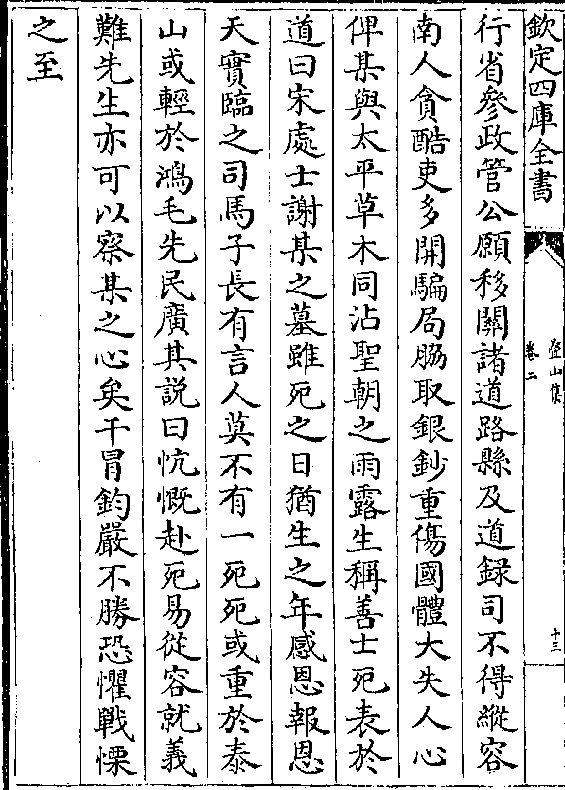 欽定四庫全書
疊山集
卷二
十三
行省參政管公願移關諸道路縣及道録司不得縱容
南人貪酷吏多開騙局脇取銀鈔重傷國體大失人心
俾某與太平草木同沾聖朝之雨露生稱善士死表於
道曰宋處士謝某之墓雖死之日猶生之年感恩報恩
天實臨之司馬子長有言人莫不有一死死或重於泰
山或輕於鴻毛先民廣其説曰忼慨赴死易從容就義
難先生亦可以察某之心矣干冒鈞嚴不勝恐懼戰慄
之至